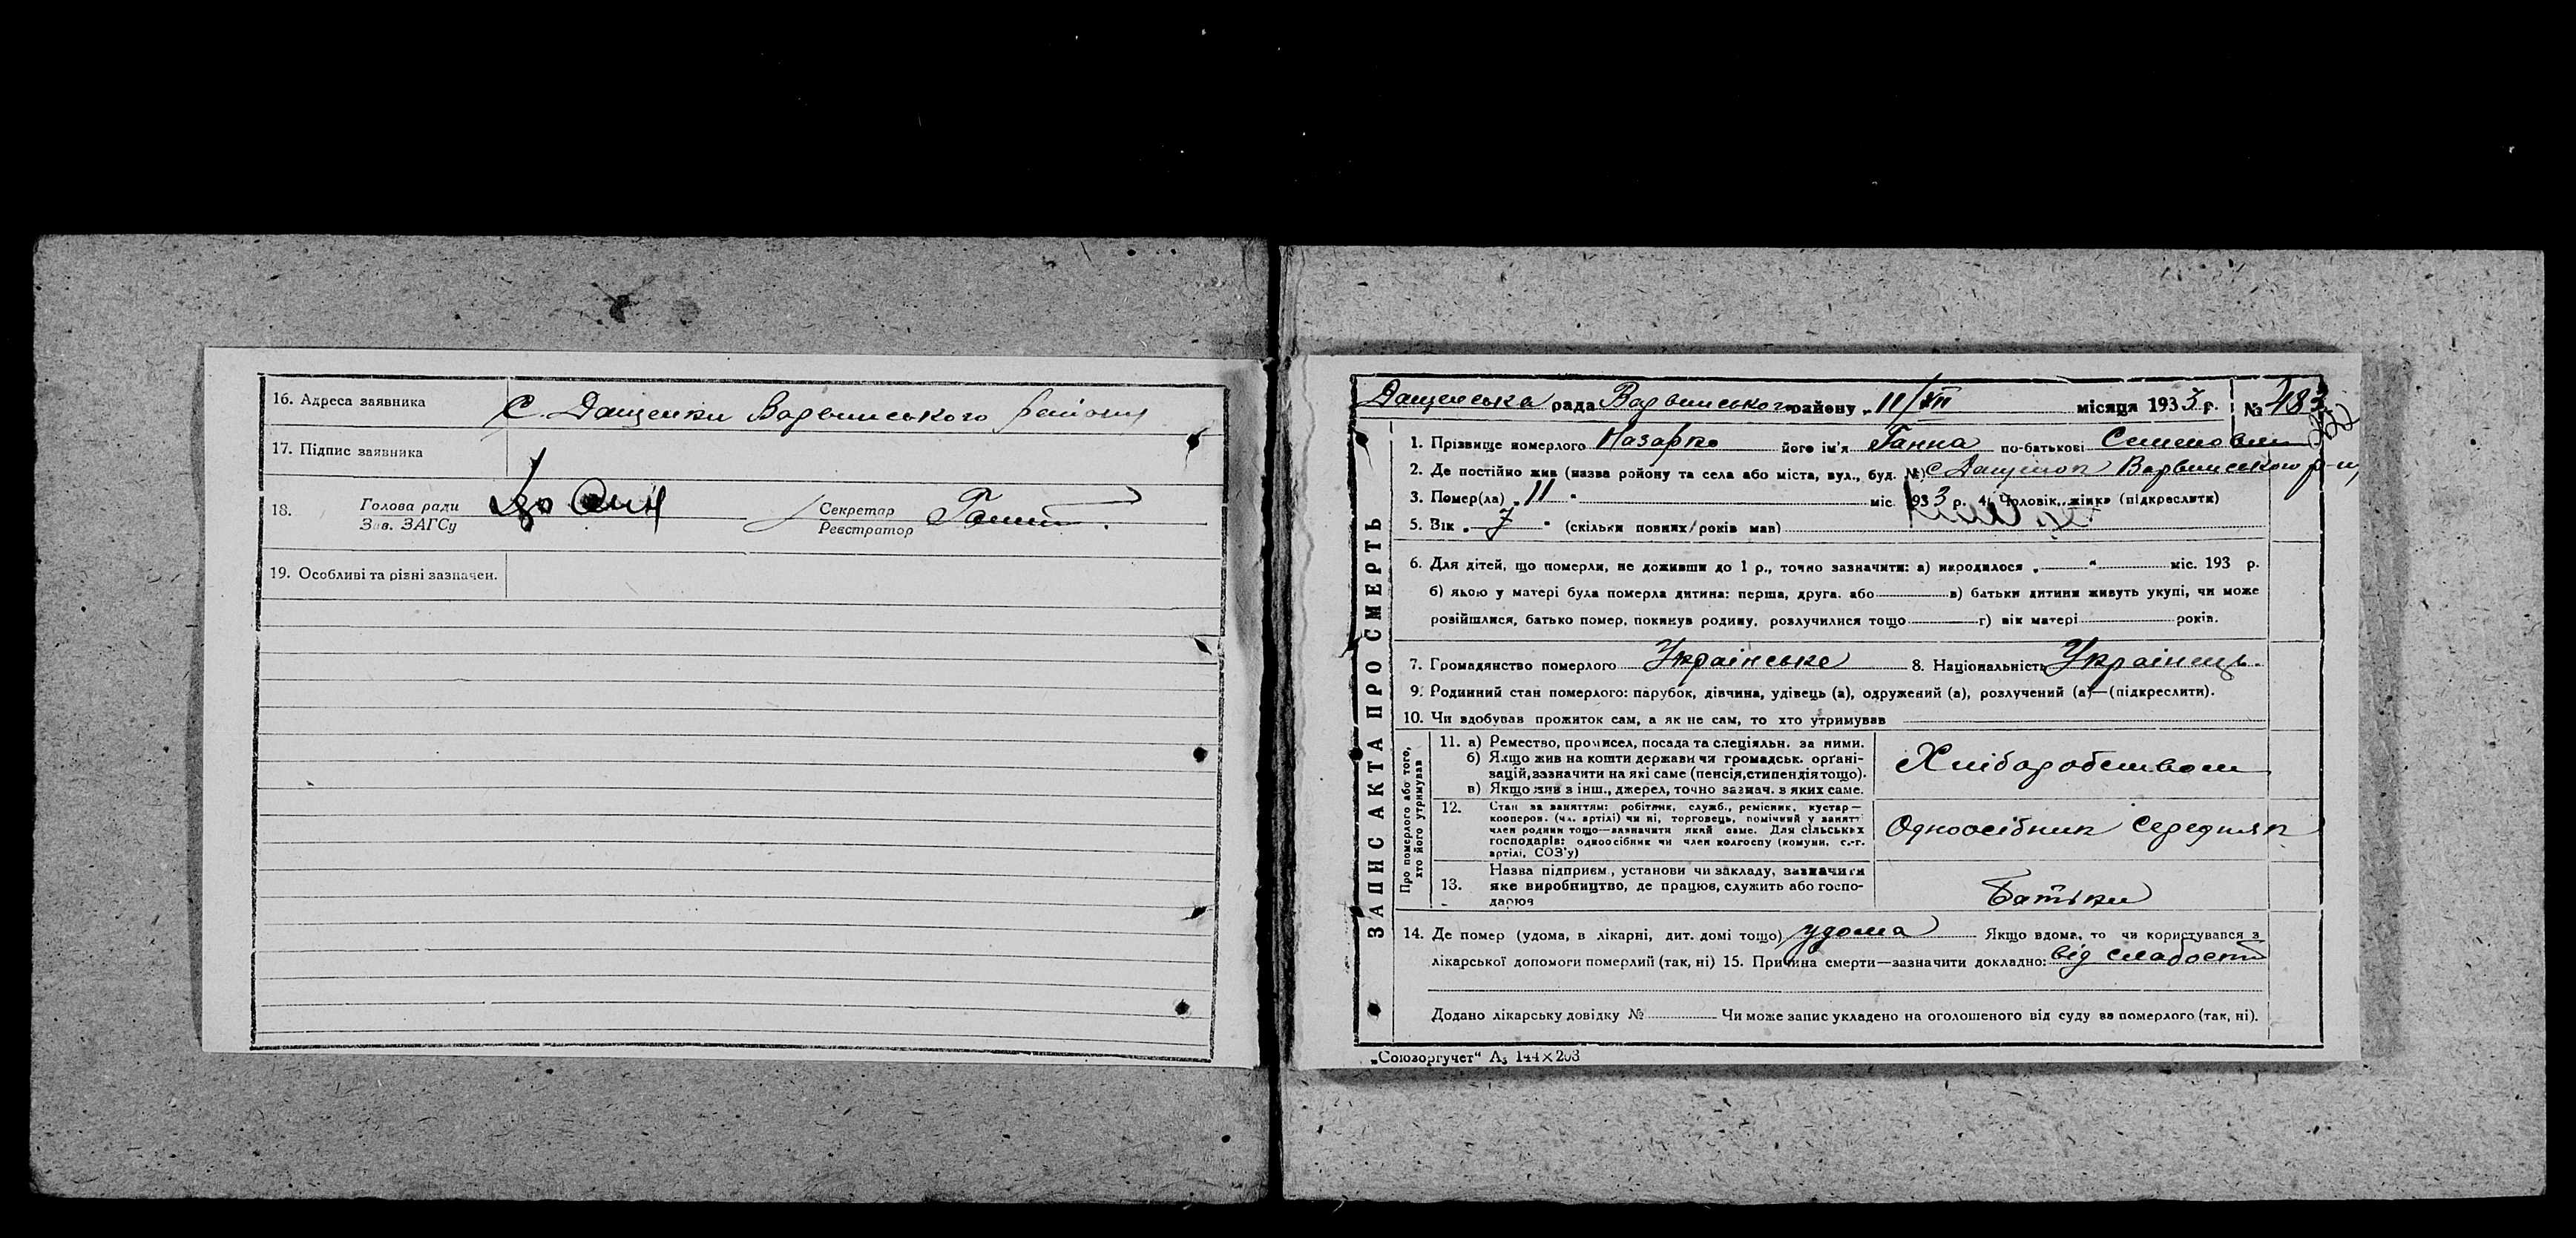 16. Адреса заявника С. Дащенки Варвинського району
17. Підпис заявника
18. Голова ради
Зав. ЗАГСу
Секретар
Реєстратор
19. Особливі та різні зазначен.
ЗАПИС АКТА ПРО СМЕРТЬ
Дащенська рада Варвинського району „11/VII місяця 1933 р. № 483
1. Прізвище померлого Назарко його ім'я Ганна по-батькові Семеновни
2. Де постійно жив (назва району та села або міста, вул., буд. №) с Дащенки Варвинського р-ну
3. Помер(ла) „11" міс. 1933 р. 4. Чоловік, жінка (підкреслити)
5. Вік „7" (скільки повних/років мав)
6. Для дітей, що померли, не доживши до 1 р., точно зазначити: а) народилося „ " міс. 193 р.
б) якою у матері була померла дитина: перша, друга. або в) батьки дитини живуть укупі, чи може
розійшлися, батько помер, покинув родину, розлучилися тощо г) вік матері років.
7. Громадянство померлого Українське 8. Національність Українець.
9. Родинний стан померлого: парубок, дівчина, удівець (а), одружений (а), розлучений (а)—(підкреслити).
10. Чи здобував прожиток сам, а як не сам, то хто утримував
Про померлого або того, хто його утримував
11. а) Ремество, промисел, посада та спеціяльн. за ними.
б) Якщо жив на кошти держави чи громадськ. органі-
зацій, зазначити на які саме (пенсія, стипендія тощо).
в) Якщо жив з інш., джерел, точно зазнач. з яких саме.
Хліборобством
12. Стан за заняттям: робітник, служб., ремісник, кустар—
кооперов. (чл. артілі) чи ні, торговець, помічний у занятт
член родини тощо—зазначити який саме. Для сільських
господарів: одноосібник чи член колгоспу (комуни, с.-г.
артілі, СОЗ'у)
Одноосібник середняк
13. Назва підприєм., установи чи закладу, зазначити
яке виробництво, де працює, служить або госпо-
дарює
Батьки
14. Де помер (удома, в лікарні, дит. домі тощо) удома Якщо вдома, то чи користувався з
лікарської допомоги померлий (так, ні) 15. Причина смерти—зазначити докладно: від слабости
Додано лікарську довідку № Чи може запис укладено на оголошеного від суду за померлого (так, ні).
„Союзоргучет" А₅ 144×203